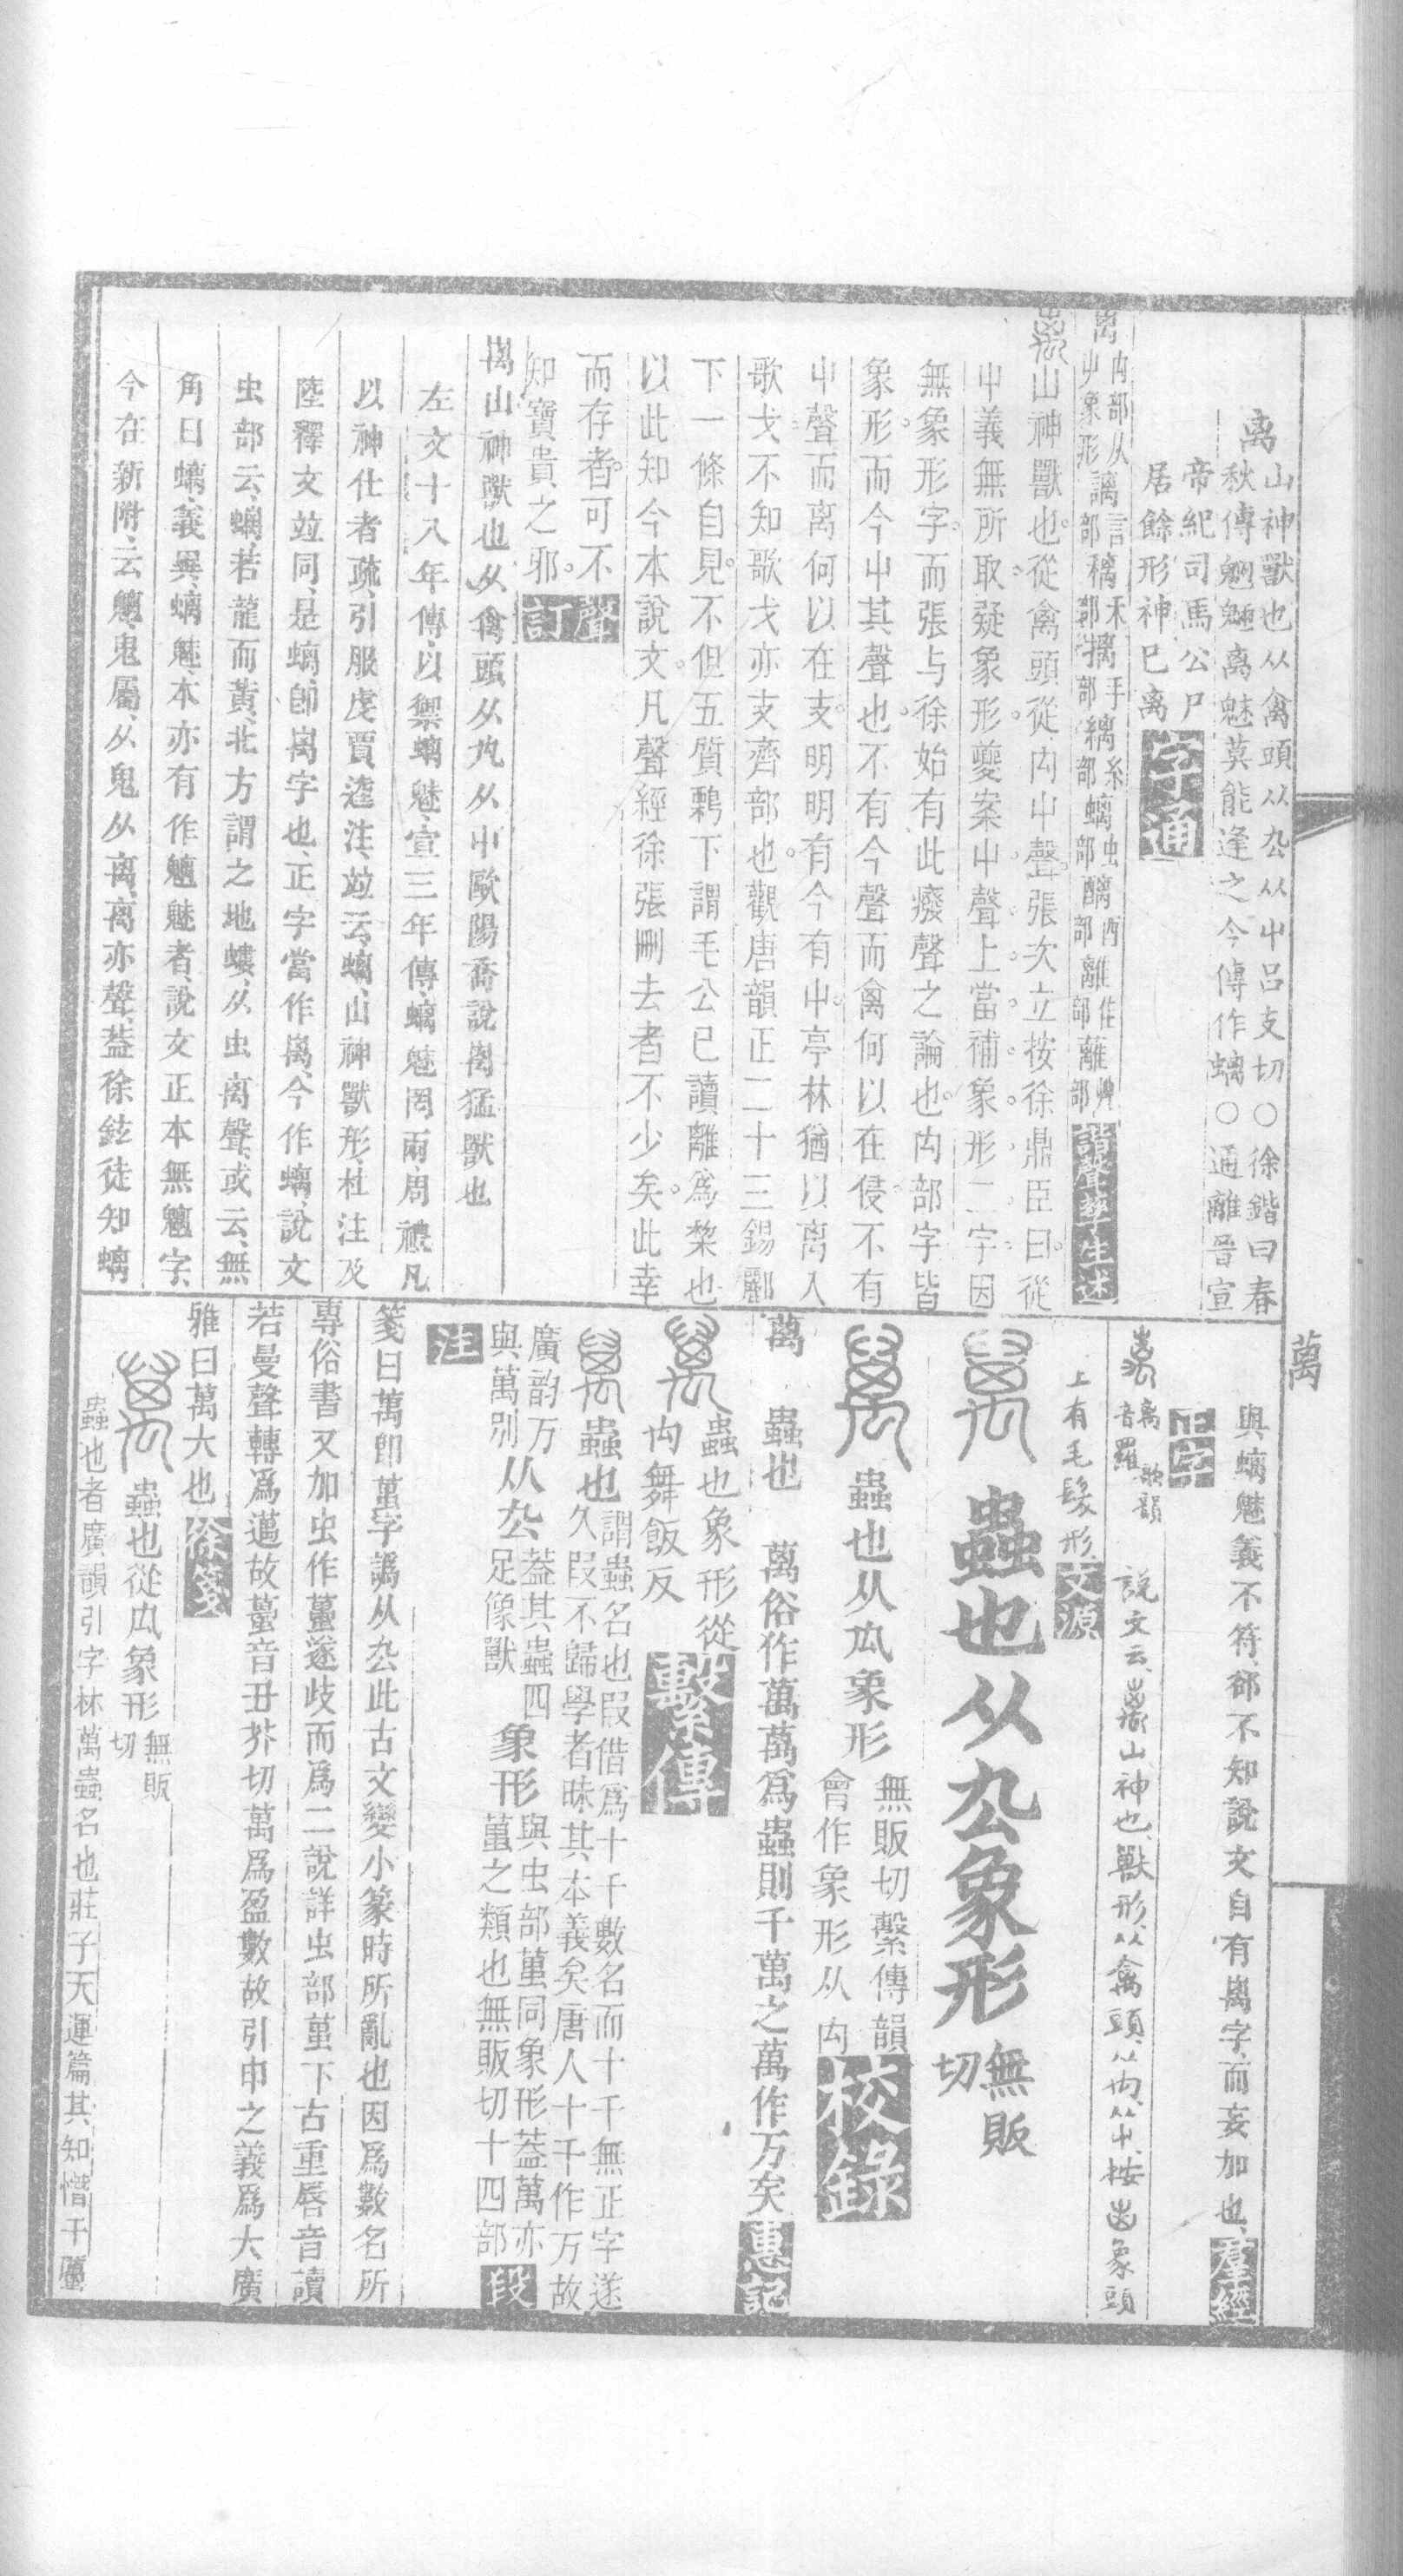 离山神獸也从禽頭从厹从屮呂支切○徐鍇曰春
秋傳魑魅离魅莫能逢之今傳作螭○通離晉宣
帝紀司馬公尸
居餘形神已离
字通
离
禸部从
屮象形
謧言部
穲禾部
摛手部
縭糸部
螭虫部
醨酉部
離隹部
蘺艸部
諧聲孳生述
山神獸也從禽頭從禸屮聲張次立按徐鼎臣曰從
屮義無所取疑象形夔案屮聲上當補象形二字因
無象形字而張与徐始有此癈聲之論也禸部字皆
象形而今屮其聲也不有今聲而禽何以在侵不有
屮聲而离何以在支明明有今有屮亭林猶以离入
歌戈不知歌戈亦支齊部也觀唐韻正二十三錫酈
下一條自見不但五質鷅下謂毛公已讀離爲棃也
以此知今本說文凡聲經徐張刪去者不少矣此幸
而存者可不
知寶貴之邪
聲訂
离山神獸也从禽頭从厹从屮歐陽喬說离猛獸也
左文十八年傳以禦螭魅宣三年傳螭魅罔兩周禮凡
以神仕者疏引服虔賈逵注竝云螭山神獸形杜注及
陸釋文竝同是螭卽离字也正字當作离今作螭說文
虫部云螭若龍而黃北方謂之地螻从虫离聲或云無
角曰螭義異螭魅本亦有作魑魅者說文正本無魑字
今在新附云魑鬼屬从鬼从离离亦聲葢徐鉉徒知螭
萬
與螭魅義不符郤不知說文自有离字而妄加也
羣經正字
离音羅歌韻
說文云离山神也獸形从禽頭从禸从屮按凶象頭
上有毛髮形
文源
蟲也从厹象形
無販切
蟲也从厹象形
無販切繫傳韻
會作象形从禸
校錄
萬 蟲也 萬俗作萬萬爲蟲則千萬之萬作万矣
惠記
蟲也象形從
禸舞飯反
繫傳
蟲也
謂蟲名也叚借爲十千數名而十千無正字遂
久叚不歸學者昧其本義矣唐人十千作万故
廣韵万
與萬別
从厹
葢其蟲四
足像獸
象形
與虫部蠆同象形葢萬亦
蠆之類也無販切十四部
段注
箋曰萬即蠆字譌从厹此古文變小篆時所亂也因爲數名所
專俗書又加虫作蠆遂歧而爲二說詳虫部蠆下古重唇音讀
若曼聲轉爲邁故蠆音丑芥切萬爲盈數故引申之義爲大廣
雅曰萬大也
徐箋
蟲也從厹象形
無販切
蟲也者廣韻引字林萬蟲名也莊子天運篇其知憯于蠆